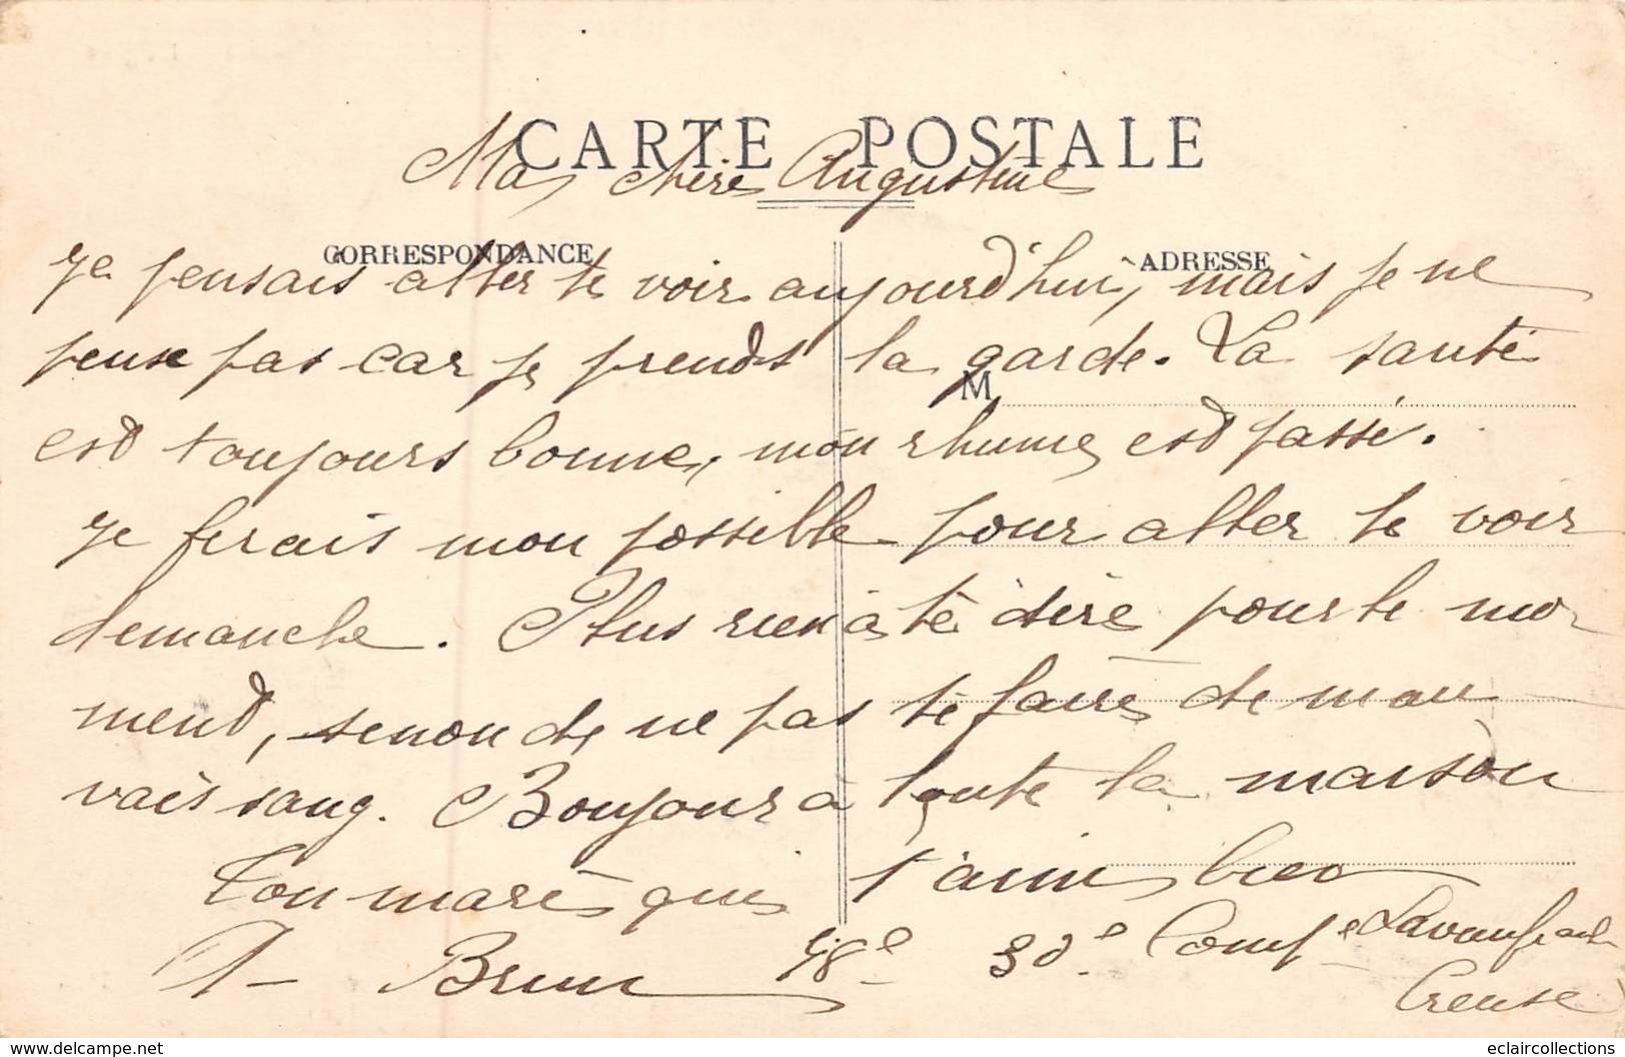 CARTE POSTALE
Ma chère Augustine
CORRESPONDANCE
ADRESSE
Je pensais aller te voir aujourd'hui, mais je ne
pense pas car je prends la garde. La santé
M
est toujours bonne, mon rhume est passé.
Je ferais mon possible pour aller te voir
demanche. Plus rien à te dire pour le mo
ment, sinon de ne pas te faire de mau
vais sang. Bonjour à toute la maison
Ton mari qui t'aime bien
Brun 98e 30e Compe Lavaufranche
Creuse
www.delcampe.net
eclaircollections